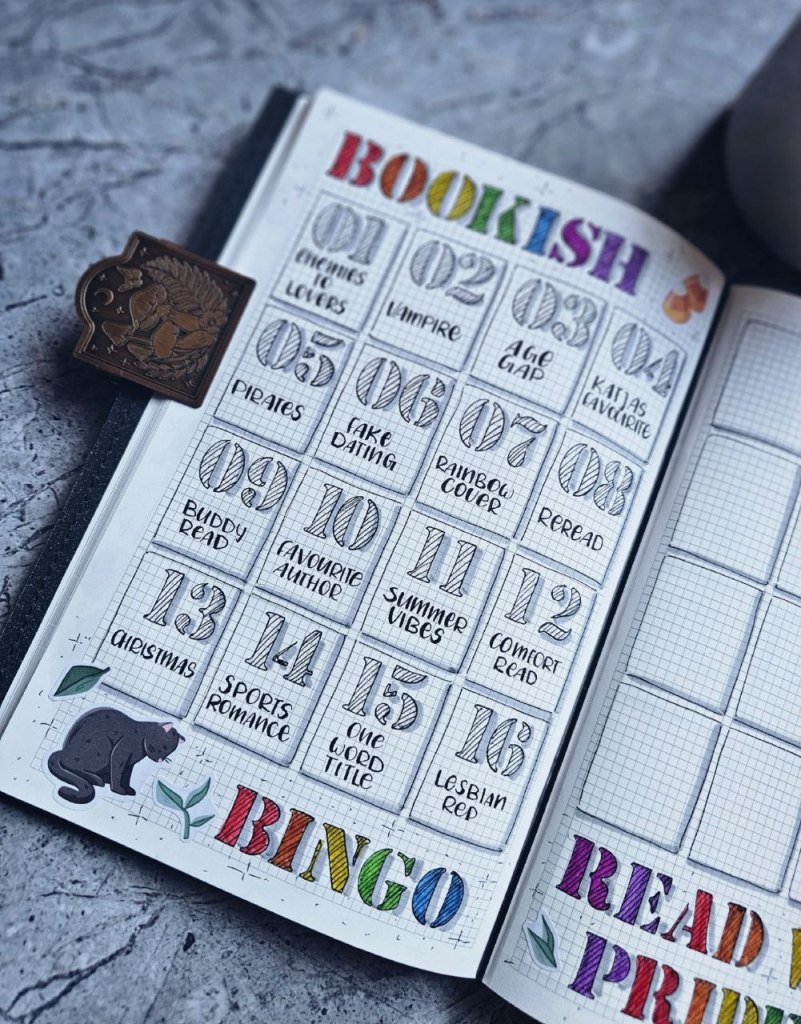 BOOKISH
01
ENEMIES
TO
LOVERS
02
VAMPIRE
03
AGE
GAP
04
KATJAS
FAVOURITE
05
PIRATES
06
FAKE
DATING
07
RAINBOW
COVER
08
REREAD
09
BUDDY
READ
10
FAVOURITE
AUTHOR
11
SUMMER
VIBES
12
COMFORT
READ
13
CHRISTMAS
14
SPORTS
ROMANCE
15
ONE
WORD
TITLE
16
LESBIAN
REP
BINGO
READ
PRID